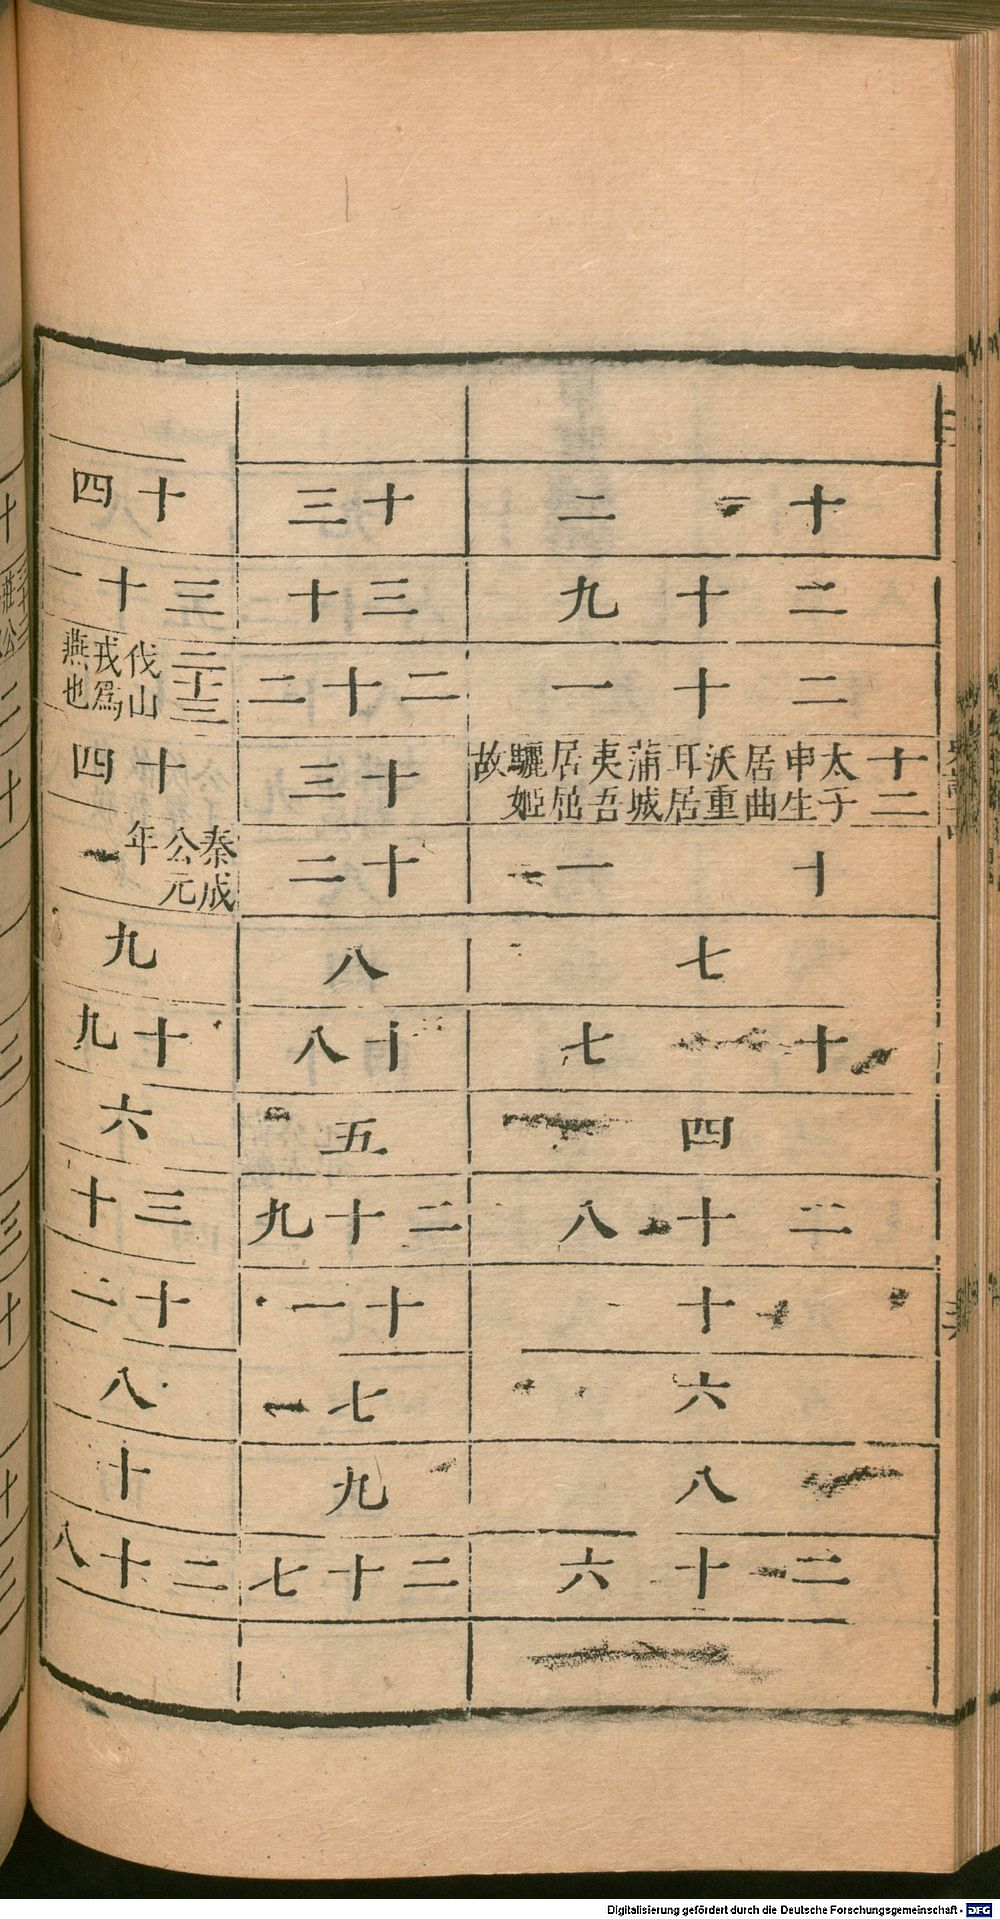 十二
二十九
二十一
十二太子申生居曲沃重耳居蒲城夷吾居屈驪姬故
十一
七
十七
四
二十八
十
六
八
二十六
十三
三十
二十二
十三
十二
八
十八
五
二十九
十一
七
九
二十七
十四
三十一
二十三伐山戎爲燕也
十四
秦成公元年
九
十九
六
三十
十二
八
十
二十八
Digitalisierung gefördert durch die Deutsche Forschungsgemeinschaft - DFG